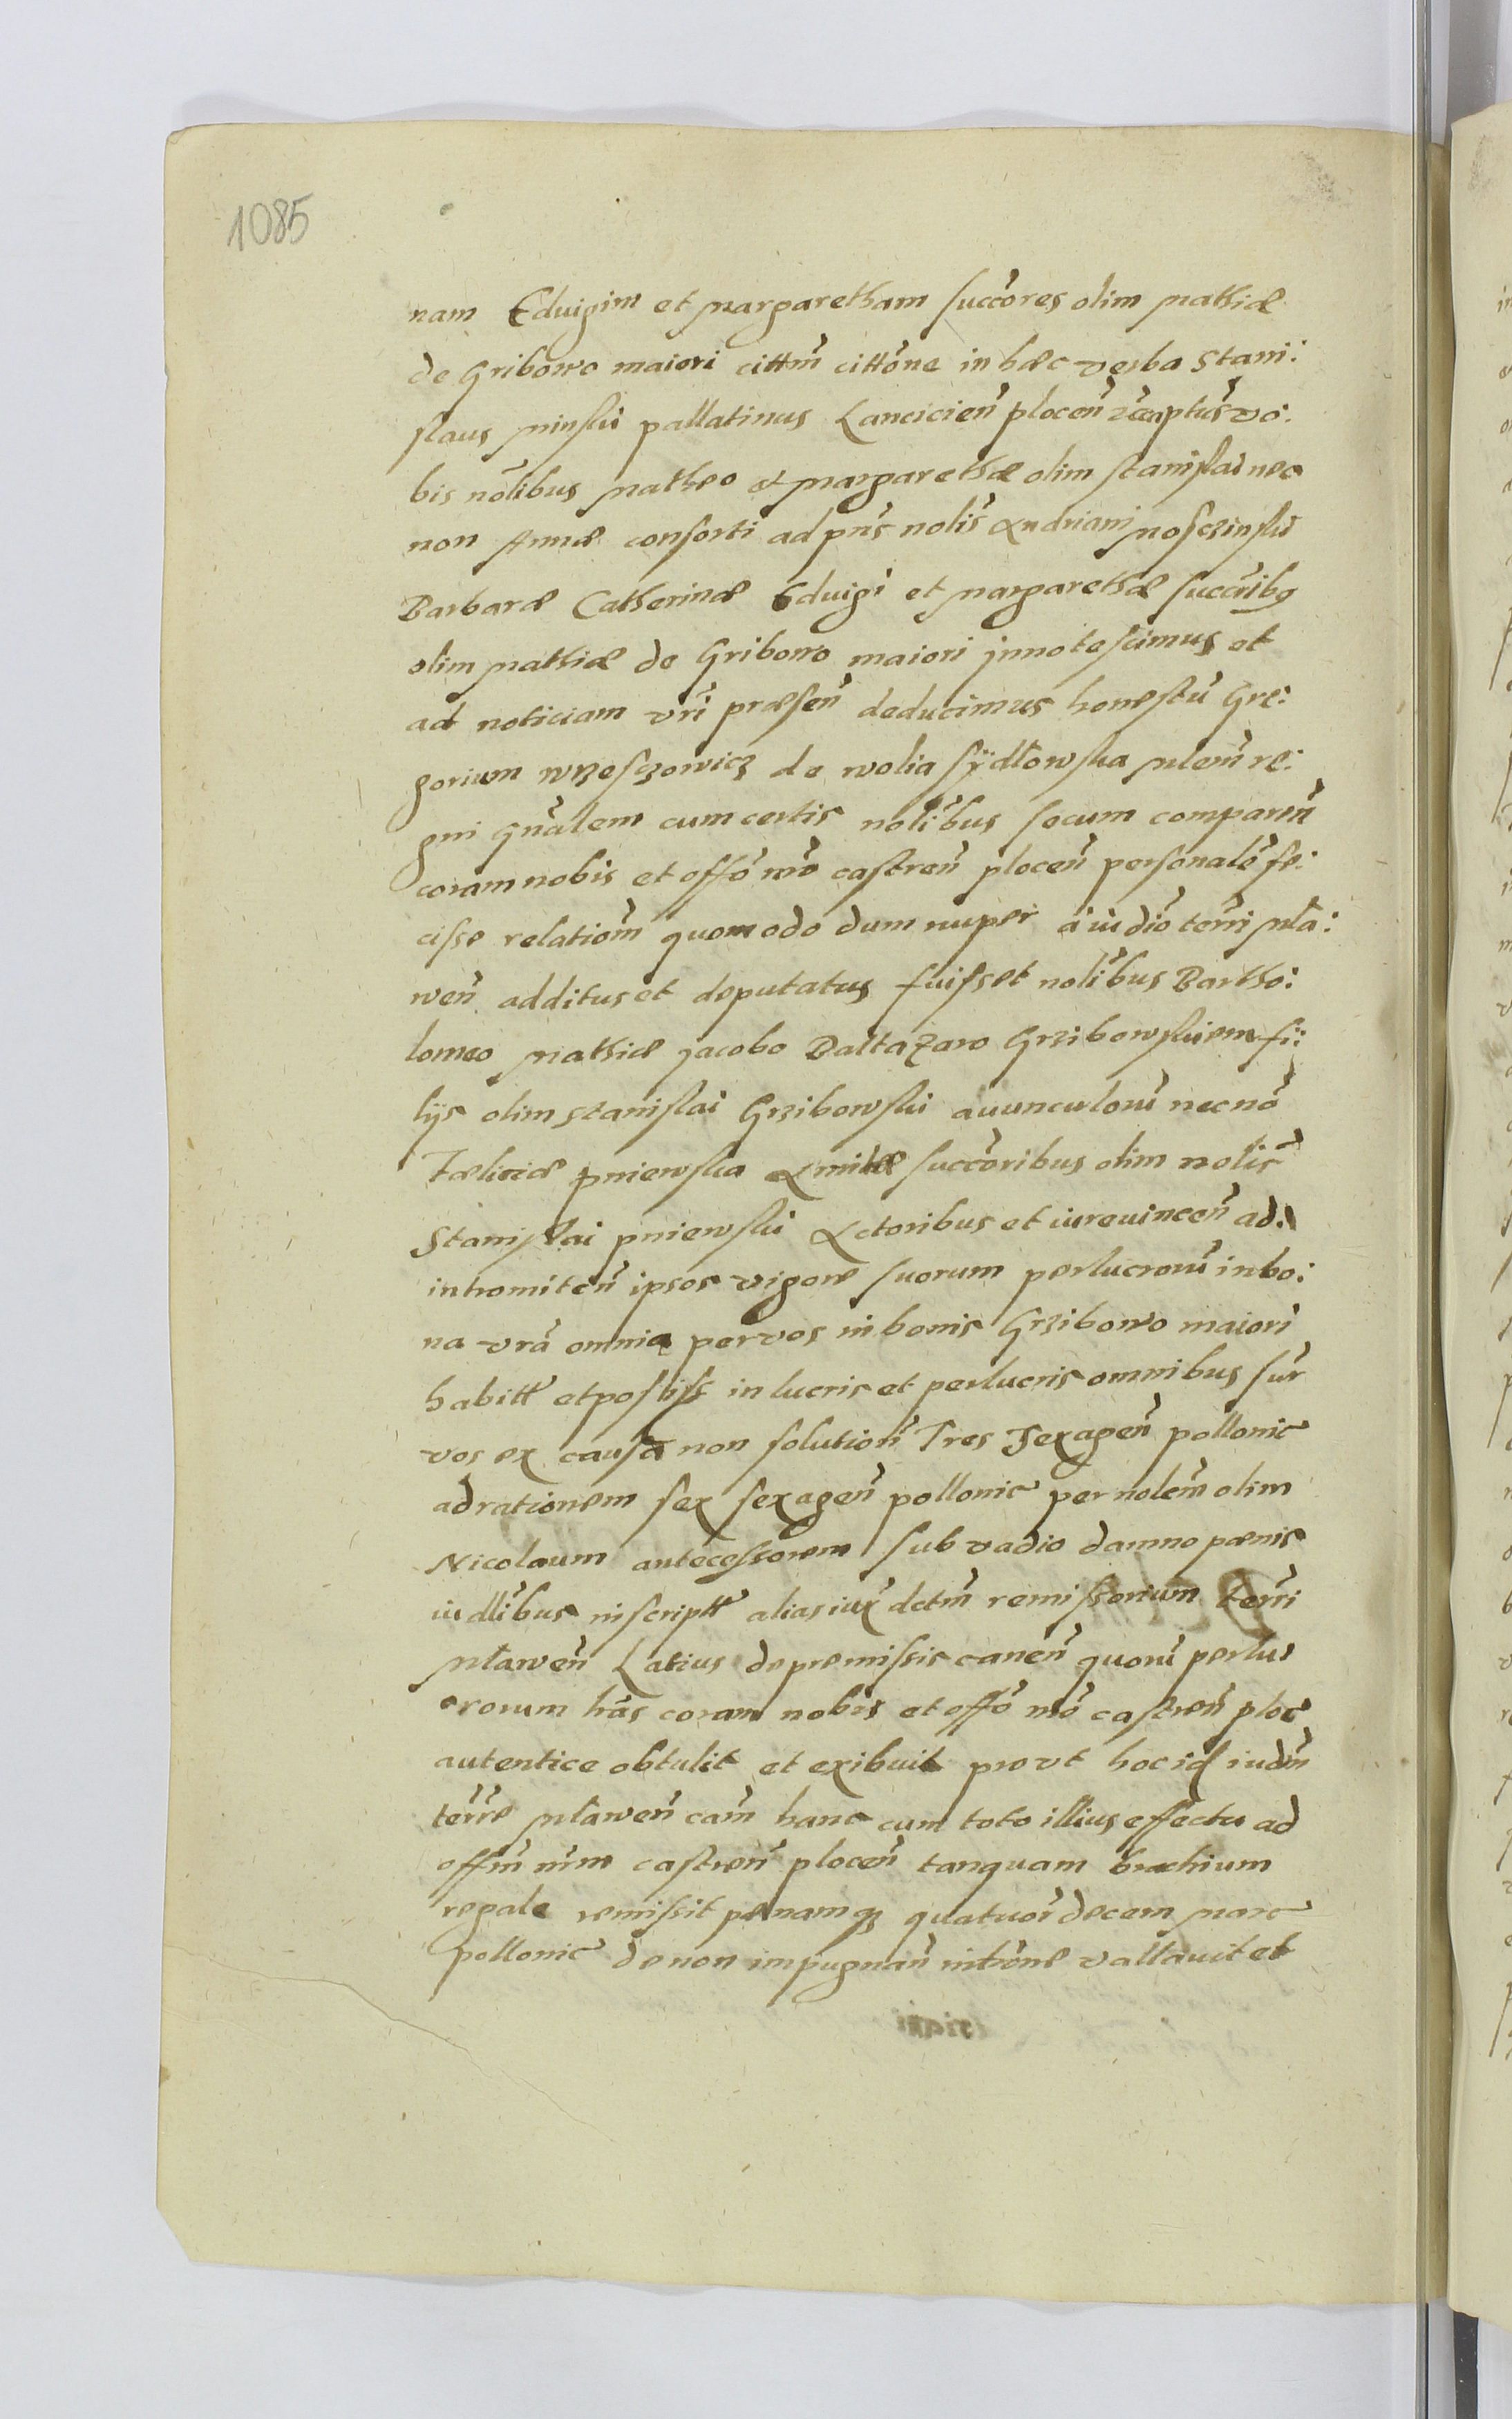 1085
nam Eduigim et Margaretham succ̃ores olim Mathiæ
de Gribowo maiori cittm̃ citto͠ne in hæc verba Stani:
slaus Minski pallatinus Lanciciен̃ ploceñ &c̃ captus̃ vo:
bis nõlibus Matheo et Margarethæ olim Stanislai nec
non Annæ consorti ad pn̄s nolis̃ Andriani Mosczinski
Barbaræ Catherinæ Eduigi et Margarethæ succ̃ribq
olim Mathiæ de Gribowo maiori innotescimus et
ad noticiam vr̃i præsen̄ deducimus honestũ Gre:
gorium Wrzesczowicz de wolia sÿdłowska mlem̃ re:
gni gñalem cum certis nolĩbus secum comparen̄
coram nobis et offõ nr̃o castren̄ plocen̄ personalẽ fe:
cisse relatiom̃ quomodo dum nuper a iudiõ terr̃i mła:
wen̄ additus et deputatus fuisset nolĩbus Bartho:
lomeo Mathiæ Jacobo Baltazaro Grzibowskiem fi:
lijs olim Stanislai Grzibowski auunculorũ necnõ
Fæliciæ pniewska Amitæ succ̃oribus olim nolis̃
Stanislai pniewski Actoribus et iureuincen̄ ad
intromiten̄ ipsos vigore suorum perlucrorũ in bo:
na vrã omnia per vos in bonis Grzibowo maiori
habitt et possiss in lucris et perlucris omnibus sur
vos ex causa non solution̄ Tres Sexagen̄ pollonic̃
ad rationem sex sexagen̄ pollonic̃ per nolem̃ olim
Nicolaum antecessorem sub vadio damno pœnis
iudlĩbus inscriptt alias iux̃ dctm̃ remissorium terr̃i
Mławen̄ Latius de premissis canen̄ quorũ perlu:
crorum lr̃as coram nobis et offõ nr̃o castren̄ ploc̃
autentice obtulit et exibuit prout hoc id iudm̃
terr̃e Mławen̄ cam̃ hanc cum toto illius effectu ad
offm̃ nrm̃ castren̄ plocen̄ tanquam brachium
regale remissit penamq quatuordecem Marc̃
pollonic̃ de non impugnan̄ intro͠ne vallauit et